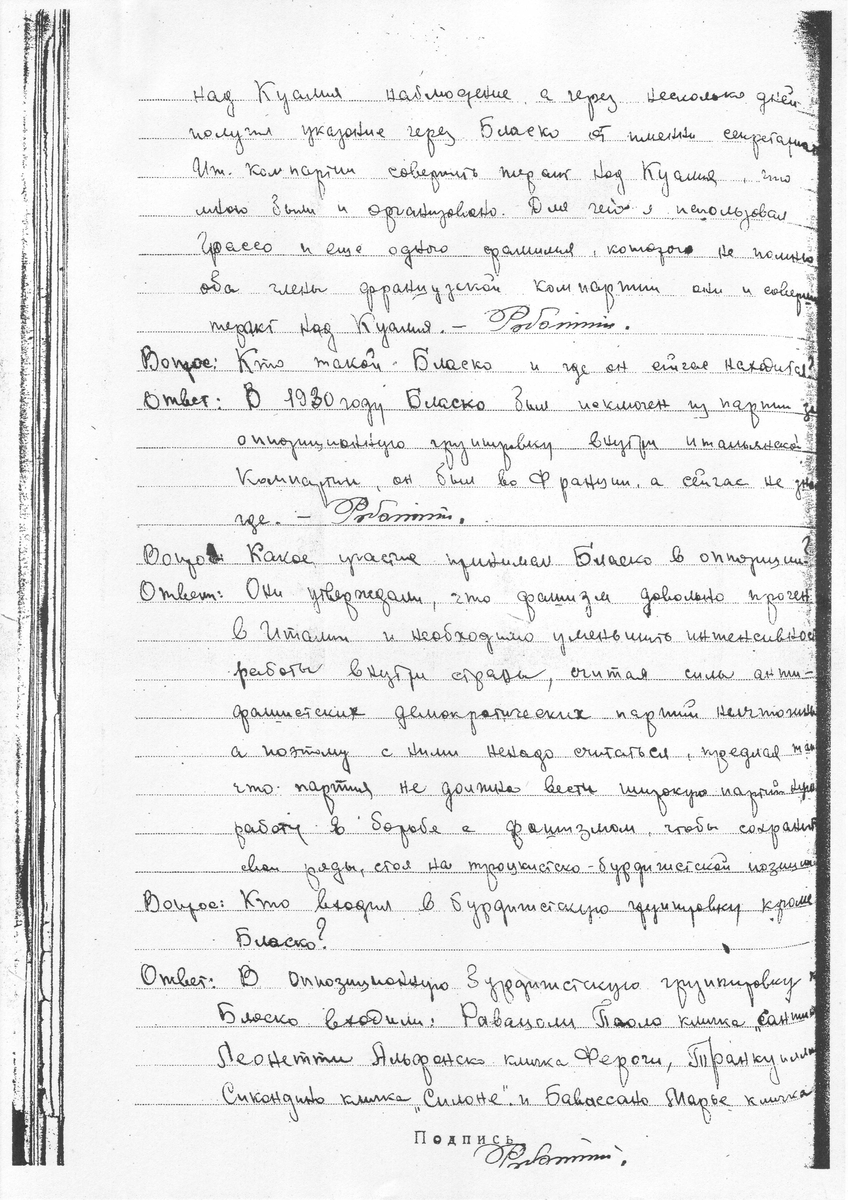 над Куалия наблюдение а через несколько дней
получил указание через Бласко от имени секретариат
Ит. компартии совершить теракт над Куалия, что
мною были и организовано. Для чего я использовал
Грассо и еще одного фамилия, которого не помню
оба члены французской компартии они и соверши
теракт над Куалия. — Роботти.
Вопрос: Кто такой Бласко и где он сейчас находится?
Ответ: В 1930 году Бласко был исключен из парти за
оппозиционную групировку внутри итальянской
Компартии, он был во Франции, а сейчас не зна
где. — Роботти.
Вопрос: Какое участие принимал Бласко в оппозиции?
Ответ: Они утверждали, что фашизм довольно прочен
в Италии и необходимо уменьшить интенсивнос
работы внутри страны, считая силы анти-
фашистских демократических партий ничтожны
а поэтому с ними ненадо считаться, предлая
что партия не должна вести широкую партийную
работу в борьбе с фашизмом, чтобы сохранит
свои ряды, стоя на троцкистско-бурдигистской позиции
Вопрос: Кто входил в бурдигистскую групировку кроме
Бласко?
Ответ: В оппозиционную бурдигистскую групировку
Бласко входили: Равацоли Паоло кличка „Санти
Леонетти Альфонско кличка Фероги, Транкуилли
Сикондино кличка „Силоне". и Бавассано Марье кличка
Подпись
Роботти.